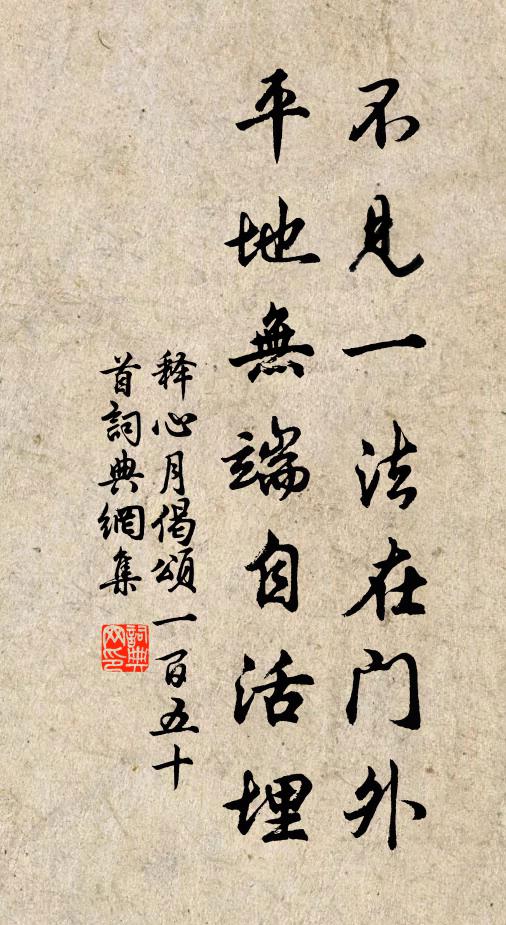 不見一法在門外
平地無端自活埋
释心月偈頌一百五十
首詞典網集
詞典
网印